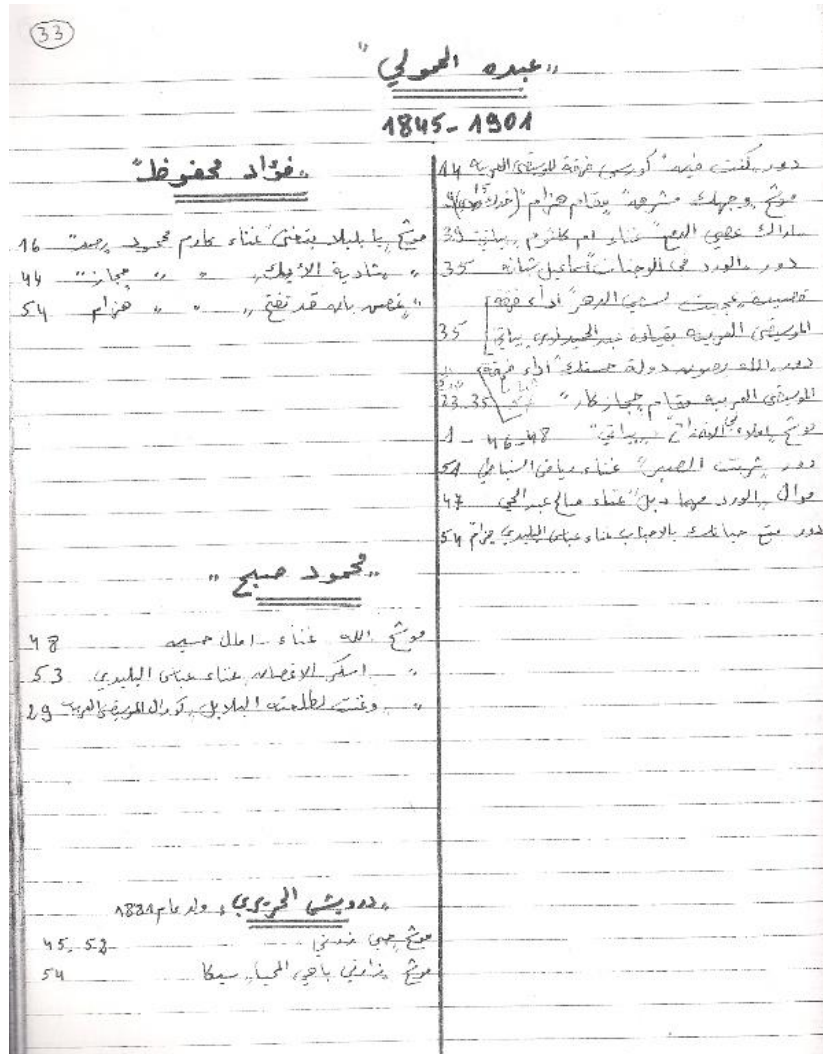 33
"عبده الحمولي"
1845-1901
دور كنت فين" كورس فرقة الموسيقى العربية 14
موشح وجهك مشرق" بمقام هزام
"أراك عصي الدمع" غناء ام كلثوم بياتي 39
دور "الورد في الوجنات" اسماعيل شبانه 35
قصيدة عجبت لسعي الدهر" أداء فرقة
الموسيقى العربية بقيادة عبد الحليم نويره بياتي 35
دور "الله يصون دولة حسنك" أداء فرقة
الموسيقى العربية مقام حجاز كار" 35 23
موشح 48-46-1
دور شربت الصبر" غناء رياض السنباطي 51
موال "الورد مهما دبل" غناء صالح عبد الحي 47
دور متع حياتك بالاحباب غناء عباس البليدي حزام 54
"فؤاد محفوظ"
موشح يا بلبلا يتغنى غناء كارم محمود رصد" 16
" شادية الأيك" " " حجاز" 44
"غصن بان قد تفتح" " " هزام 54
"محمود صبح"
موشح الله غناء امال حسين 48
" اسكر الاغصان غناء عباس البليدي 53
" وغنت لطلعته البلابل كورال الموسيقى العربية 29
"درويش الحريري" ولد عام 1881
موشح حبي زرني 52-45
موشح زارني باهي المحيا سيكا 54